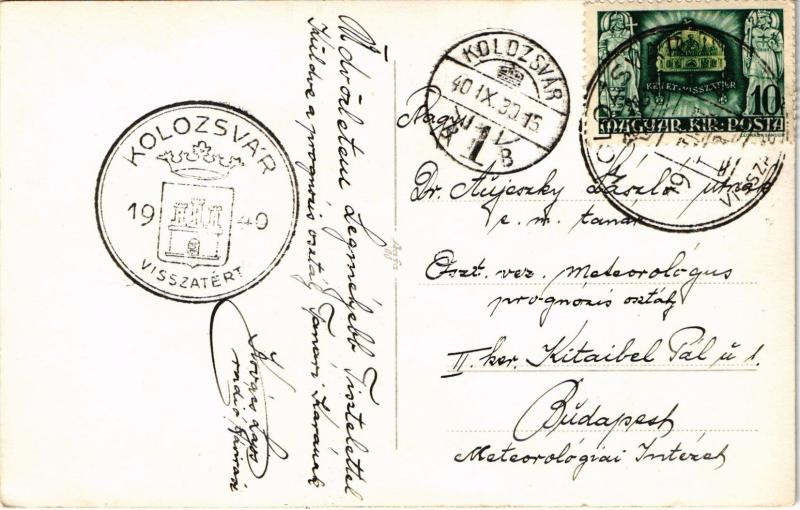 KOLOZSVÁR
1940
VISSZATÉRT
Üdvözletem Legmélyebb Tisztelettel
Küldve a prognózis osztály Tanári Karának
Kovács Lajos
rádió
KOLOZSVÁR
40 IX. 30. 15
1
B
KELET VISSZATÉR
10
MAGYAR KIR. POSTA
KOLOZSVÁR
19
VISSZA
Nagys
Dr. Aujeszky László úrnak
e. m. tanár
Oszt. vez. Meteorológus
prognózis osztály
II. ker. Kitaibel Pál u 1.
Budapest
Meteorológiai Intézet